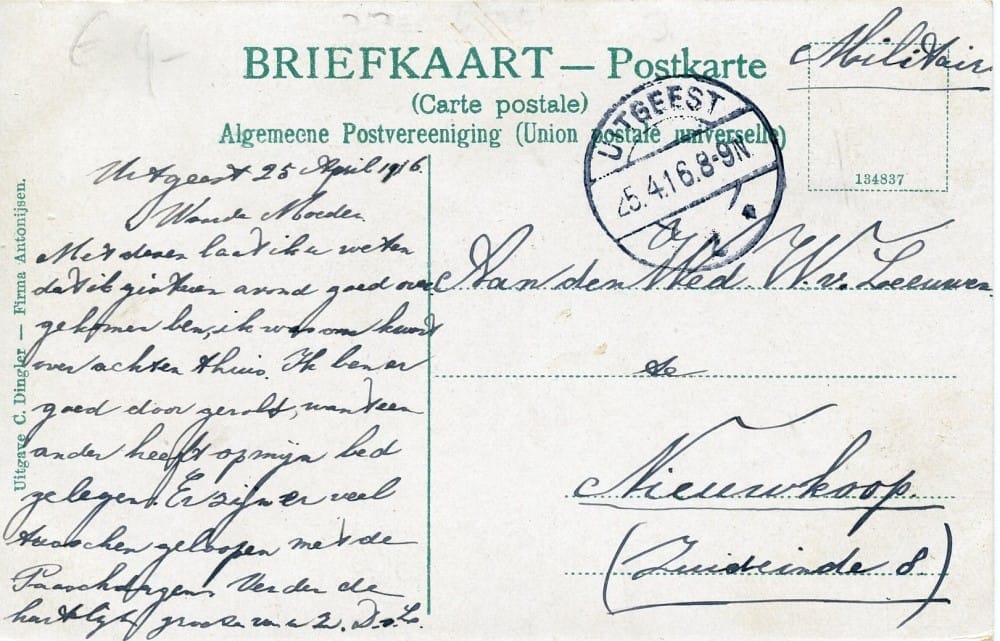 € 9-
BRIEFKAART — Postkarte
(Carte postale)
Algemeene Postvereeniging (Union postale universelle)
Militair
134837
UITGEEST
25.4.16.8-9N
Uitgave C. Dingler — Firma Antonijsen.
Uitgeest 25 April 1916.
Waarde Moeder
Met dezen laat ik u weten
dat ik gisteren avond goed over
gekomen ben, ik was om kwart
over achten thuis. Ik ben er
goed door gerold, want een
ander heeft op mijn bed
gelegen. Er zijn er veel
tusschen geloopen met de
Paaschdagen. Verder de
hartelijke groeten van u Z. D.v.L.
Aan den Wed. W. v. Leeuwen
te
Nieuwkoop.
(Zuideinde 8.)